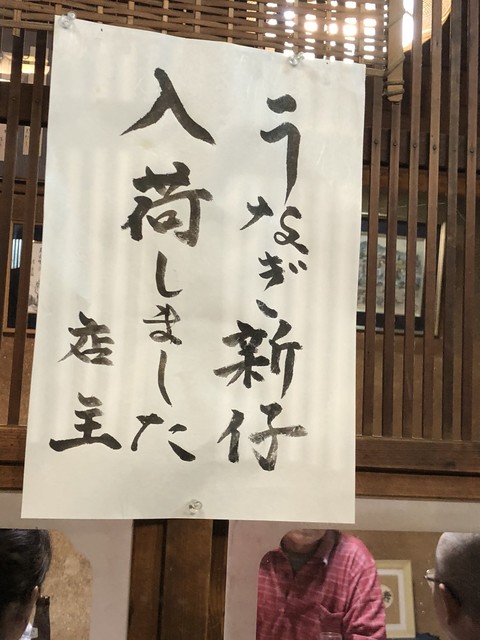 うなぎ新仔
入荷しました
店主